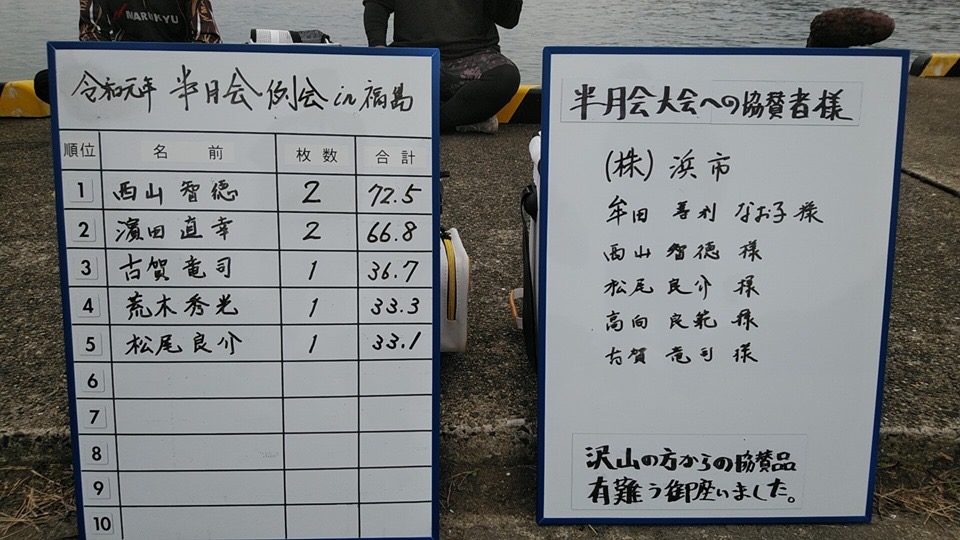 MARUKYU
令和元年 半月会 例会 in 福島
順位 名前 枚数 合計
1 西山 智徳 2 72.5
2 濱田 直幸 2 66.8
3 古賀 竜司 1 36.7
4 荒木 秀光 1 33.3
5 松尾 良介 1 33.1
6
7
8
9
10
半月会大会への協賛者様
(株) 浜市
牟田 善利 なお子 様
西山 智徳 様
松尾 良介 様
高向 良範 様
古賀 竜司 様
沢山の方からの協賛品
有難う御座いました。